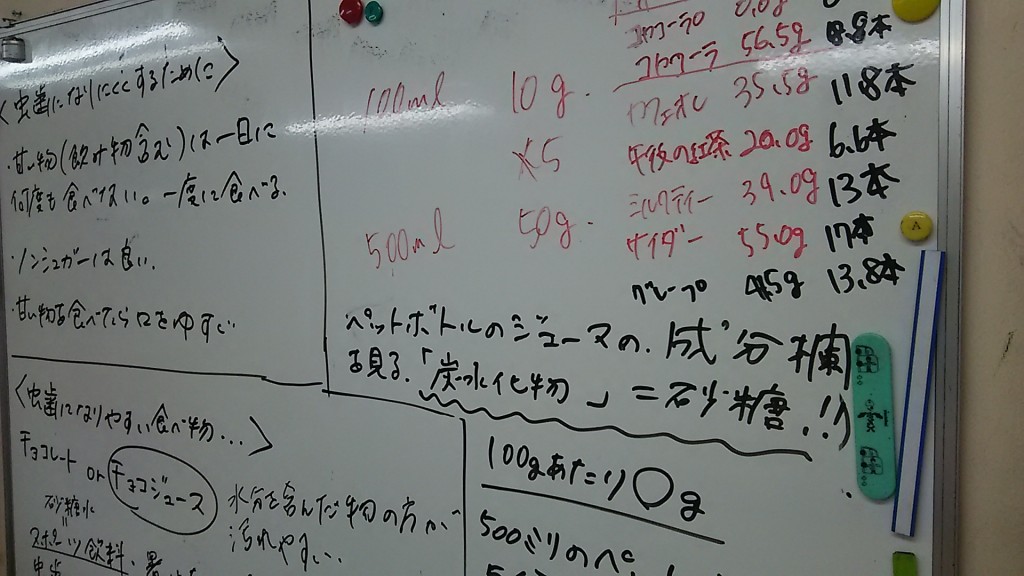 <虫歯になりにくくするために>
・甘い物(飲み物含む)は一日に
何度も食べない。一度に食べる.
・ノンシュガーは良い.
・甘い物を食べたら口をゆすぐ
<虫歯になりやすい食べ物...>
チョコレート or チョコジュース
砂糖水
水分を含んだ物の方が
汚れやすい.
スポーツ飲料、
100ml 10g.
×5
500ml 50g.
0.0g
コカコーラ 56.5g 8.8本
カフェオレ 35.5g 11.8本
午後の紅茶 20.0g 6.6本
ミルクティー 39.0g 13本
サイダー 55.0g 17本
グレープ 13.8本
ペットボトルのジュースの.成分欄
を見る.「炭水化物」=砂糖.!!
100gあたり○g
500ミリのペ